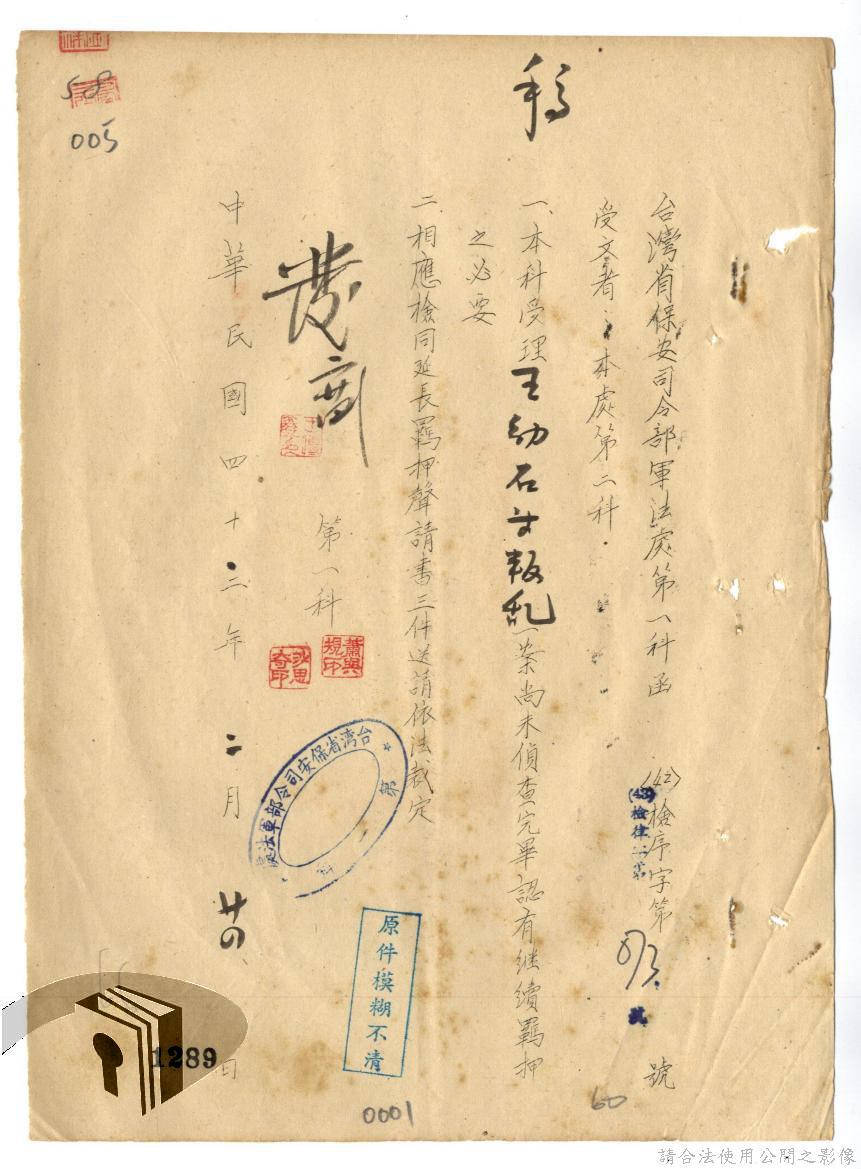 稿
台灣省保安司令部軍法處第一科函
(42)檢序字第 號
(43)檢律
受文者:本處第二科
一、本科受理王幼石等叛亂一案尚未偵查完畢認有继續羈押
之必要
二、相應檢同延長羈押聲請書三件送請依法裁定
第一科
蕭與規印
台湾省保安司令部軍法處
第一科
中華民國四十三年二月廿四日
原件模糊不清
58
005
1289
0001
60
請合法使用公開之影像